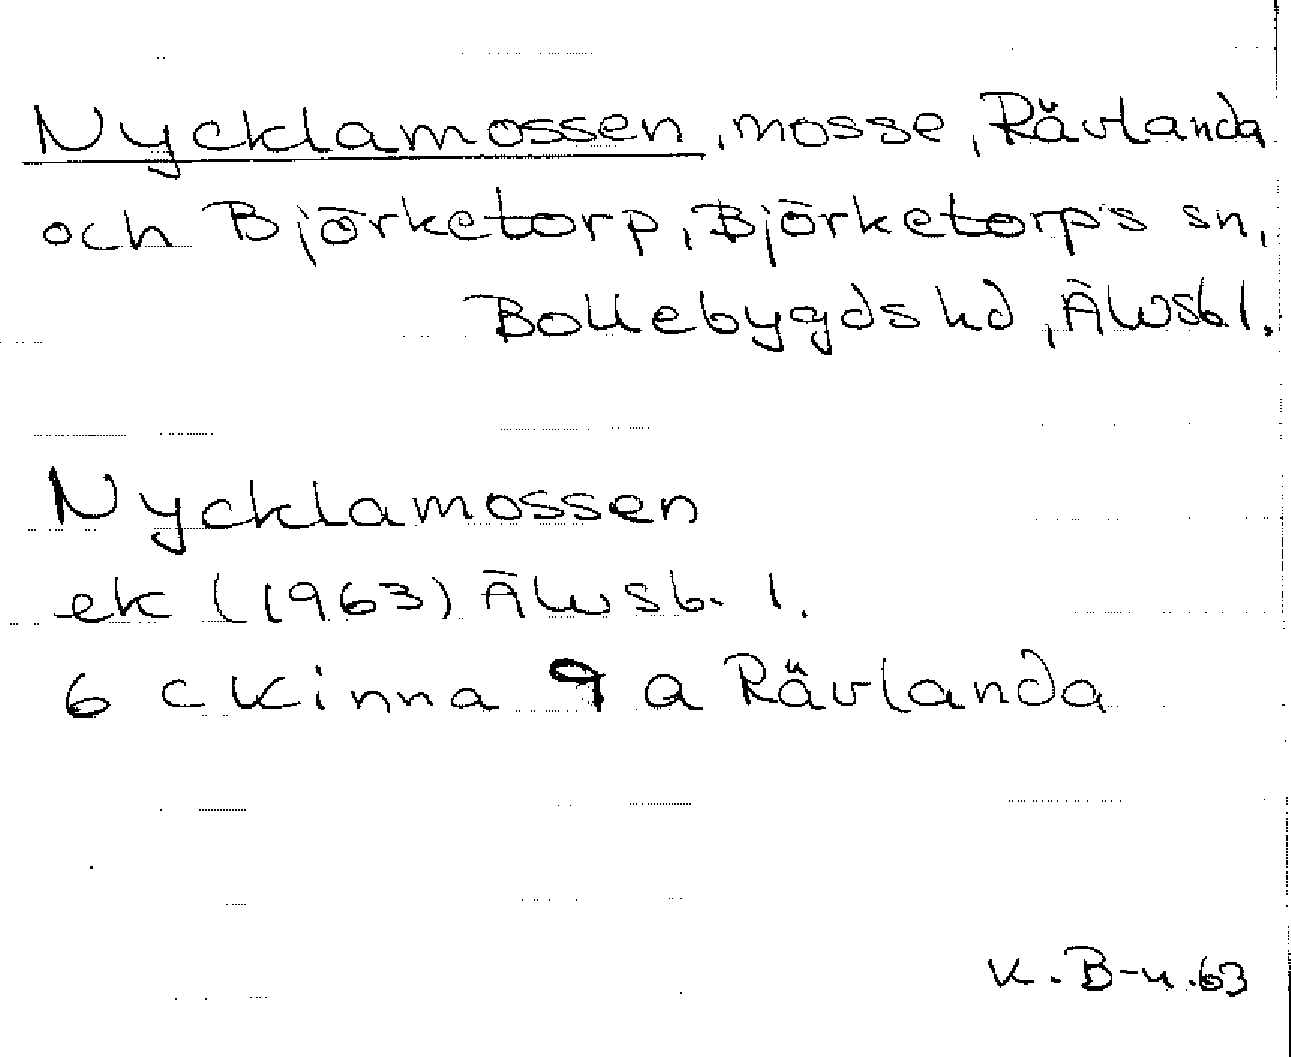 Nycklamossen, mosse, Rävlanda
och Björketorp, Björketorps sn,
Bollebygds hd, Älvsb. l.
Nycklamossen
ek (1963) Älvsb. l.
6 c Kinna 9 a Rävlanda
K. B-n. 63